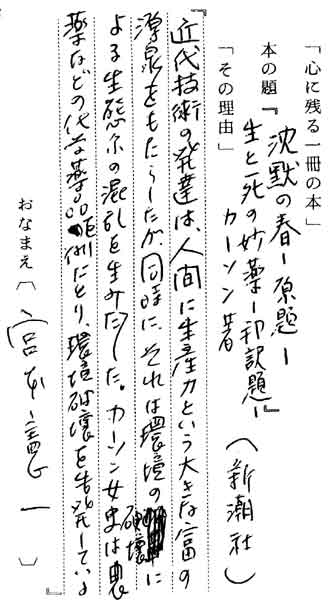 「心に残る一冊の本」
本の題『沈黙の春ー原題ー
生と死の妙薬ー邦訳題ー』
カーソン著
(新潮社)
「その理由」
『近代技術の発達は、人間に生産力という大きな富の
源泉をもたらしたが、同時に、それは環境の破壊に
よる生態系の混乱を生みだした。カーソン女史は農
薬などの化学薬品を例にとり、環境破壊を告発している』
おなまえ〔宮本憲一〕